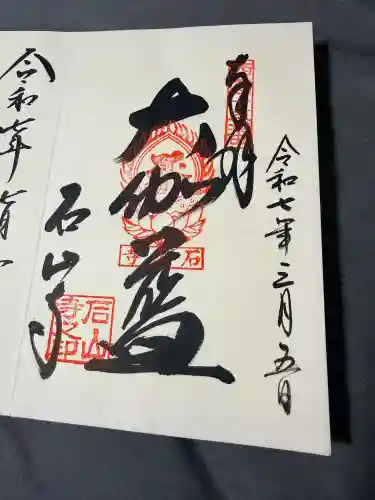 令和七年三月五日
奉拝
大伽藍
石山寺
石山
寺印
石
寺
令和七年